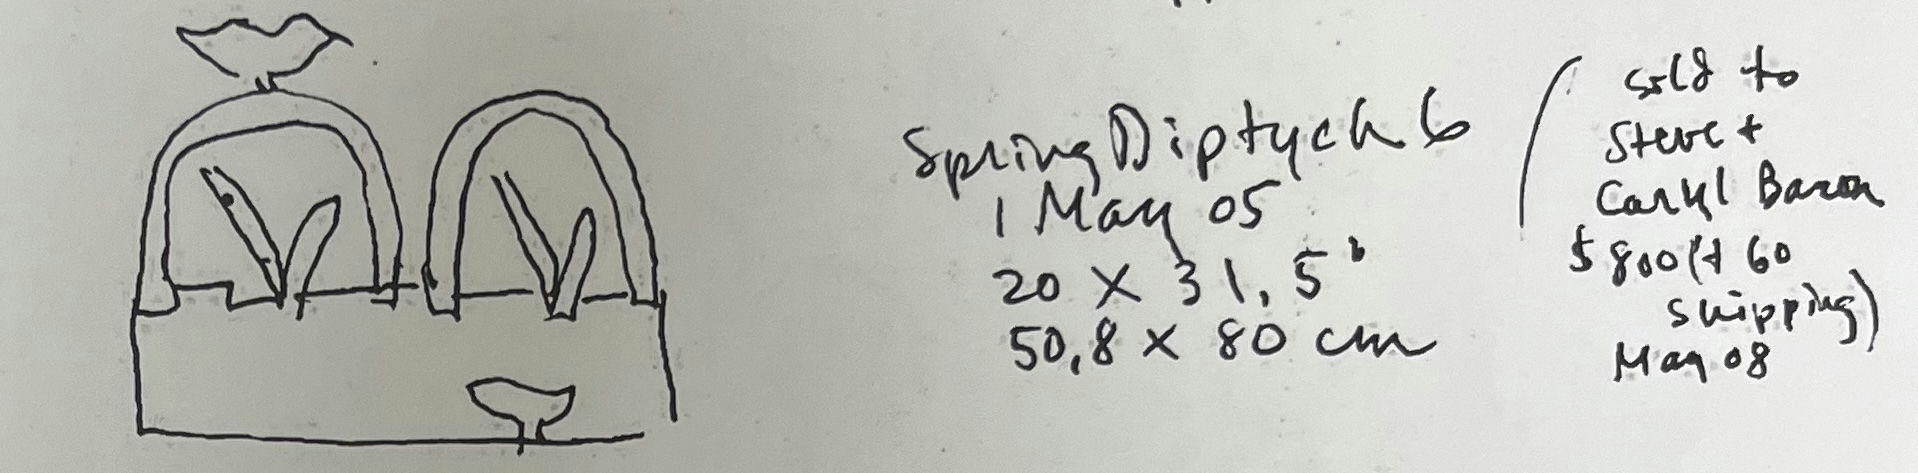 Spring Diptych 6
1 May 05
20 x 31,5"
50,8 x 80 cm
sold to
Steve +
Caryl Baron
$800 (+ 60
shipping)
May 08